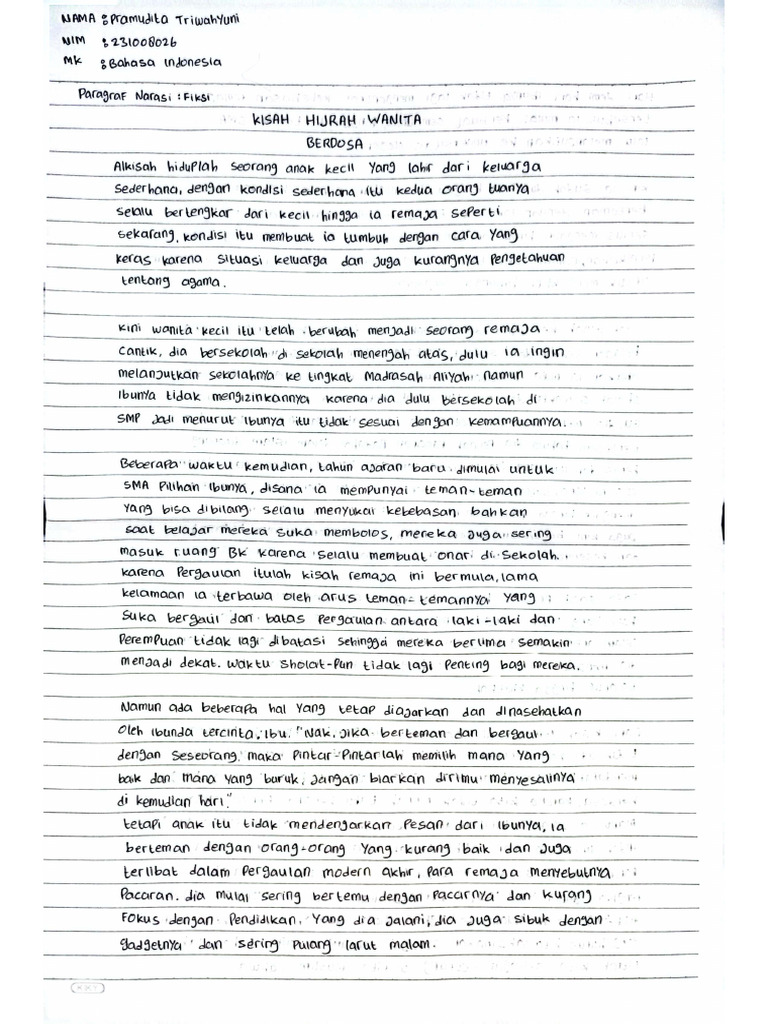 NAMA : Pramudita Triwahyuni
NIM : 231008026
MK : Bahasa Indonesia
Paragraf Narasi : Fiksi
KISAH HIJRAH WANITA
BERDOSA
Alkisah hiduplah seorang anak kecil yang lahir dari keluarga
sederhana, dengan kondisi sederhana itu kedua orang tuanya
selalu bertengkar dari kecil hingga ia remaja seperti
sekarang, kondisi itu membuat ia tumbuh dengan cara yang
keras karena situasi keluarga dan juga kurangnya pengetahuan
tentang agama.
Kini wanita kecil itu telah berubah menjadi seorang remaja
cantik, dia bersekolah di sekolah menengah atas, dulu ia ingin
melanjutkan sekolahnya ke tingkat Madrasah Aliyah namun
Ibunya tidak mengizinkannya karena dia dulu bersekolah di
SMP Jadi menurut ibunya itu tidak sesuai dengan kemampuannya.
Beberapa waktu kemudian, tahun ajaran baru dimulai untuk
SMA Pilihan Ibunya, disana ia mempunyai teman-teman
yang bisa dibilang selalu menyukai kebebasan bahkan
saat belajar mereka suka membolos, mereka juga sering
masuk ruang BK karena selalu membuat onari di sekolah.
karena Pergaulan itulah kisah remaja ini bermula, lama
kelamaan ia terbawa oleh arus teman-temannya yang
suka bergaul dan batas pergaulan antara laki-laki dan
Perempuan tidak lagi dibatasi sehingga mereka berlima semakin
menjadi dekat. waktu sholat-pun tidak lagi penting bagi mereka.
Namun ada beberapa hal yang tetap diajarkan dan dinasehatkan
oleh ibunda tercinta, Ibu. "Nak, Jika berteman dan bergaul
dengan seseorang maka pintar-pintarlah memilih mana yang
baik dan mana yang buruk, Jangan biarkan dirimu menyesalinya
di kemudian hari."
tetapi anak itu tidak mendengarkan Pesan dari Ibunya, ia
berteman dengan orang-orang yang kurang baik dan juga
terlibat dalam pergaulan modern akhir, para remaja menyebutnya
Pacaran. dia mulai sering bertemu dengan pacarnya dan kurang
Fokus dengan Pendidikan, yang dia jalani, dia juga sibuk dengan
gadgetnya dan sering pulang larut malam.